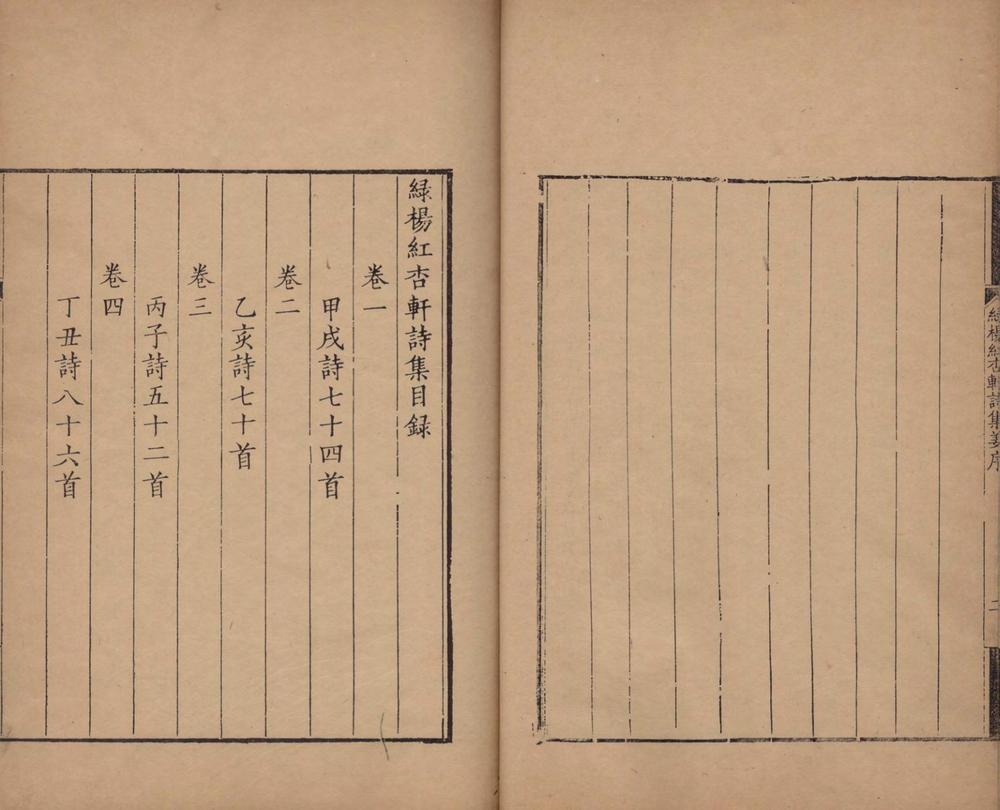 綠楊紅杏軒詩集姜序
二
緑楊紅杏軒詩集目録
卷一
甲戌詩七十四首
卷二
乙亥詩七十首
卷三
丙子詩五十二首
卷四
丁丑詩八十六首